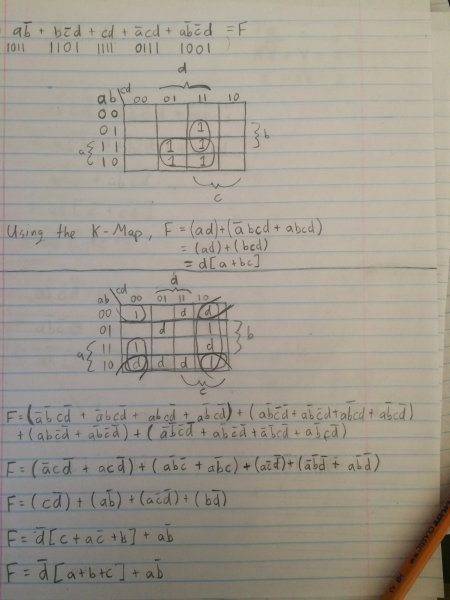 ab̄ + bc̄d + cd + ācd + ab̄c̄d = F
1011 1101 1111 0111 1001
d
ab cd 00 01 11 10
00
01 1
11 1 1
10 1 1
a
b
c
Using the K-Map, F = (ad)+(ābcd + abcd)
= (ad) + (bcd)
= d[a+bc]
d
ab cd 00 01 11 10
00 1 d d
01 d 1
11 1 d
10 d d d 1
a
b
c
F=(āb̄cd̄ + ābcd + abcd̄ + ab̄cd̄) + (ab̄c̄d̄+ab̄c̄d+ab̄cd+ab̄cd̄)
+(abc̄d̄ + ab̄c̄d̄) + (āb̄c̄d̄+ab̄c̄d̄+āb̄cd̄+ab̄cd̄)
F=(ācd̄ + acd̄)+(ab̄c̄ + ab̄c)+(ac̄d̄)+(āb̄d̄ + ab̄d̄)
F=(cd̄)+(ab̄)+(ac̄d̄)+(b̄d̄)
F=d̄[c+ac̄+b̄]+ab̄
F=d̄[a+b̄+c]+ab̄